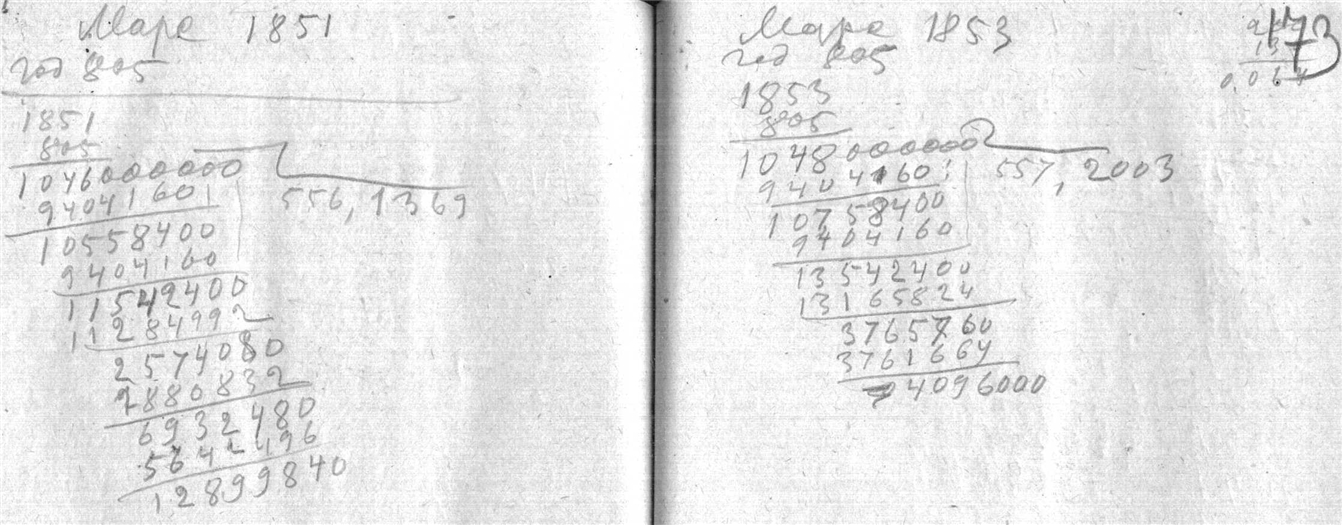 Марс 1851
год 805
1851
805
1046000000
94041601
556,1369
10558400
9404160
11542400
11284992
2574080
2880832
6932480
5642496
12899840
Марс 1853
год 805
173
0,064
1853
805
1048000000
94041601
557,2003
10758400
9404160
13542400
13165824
3765760
3761664
4096000